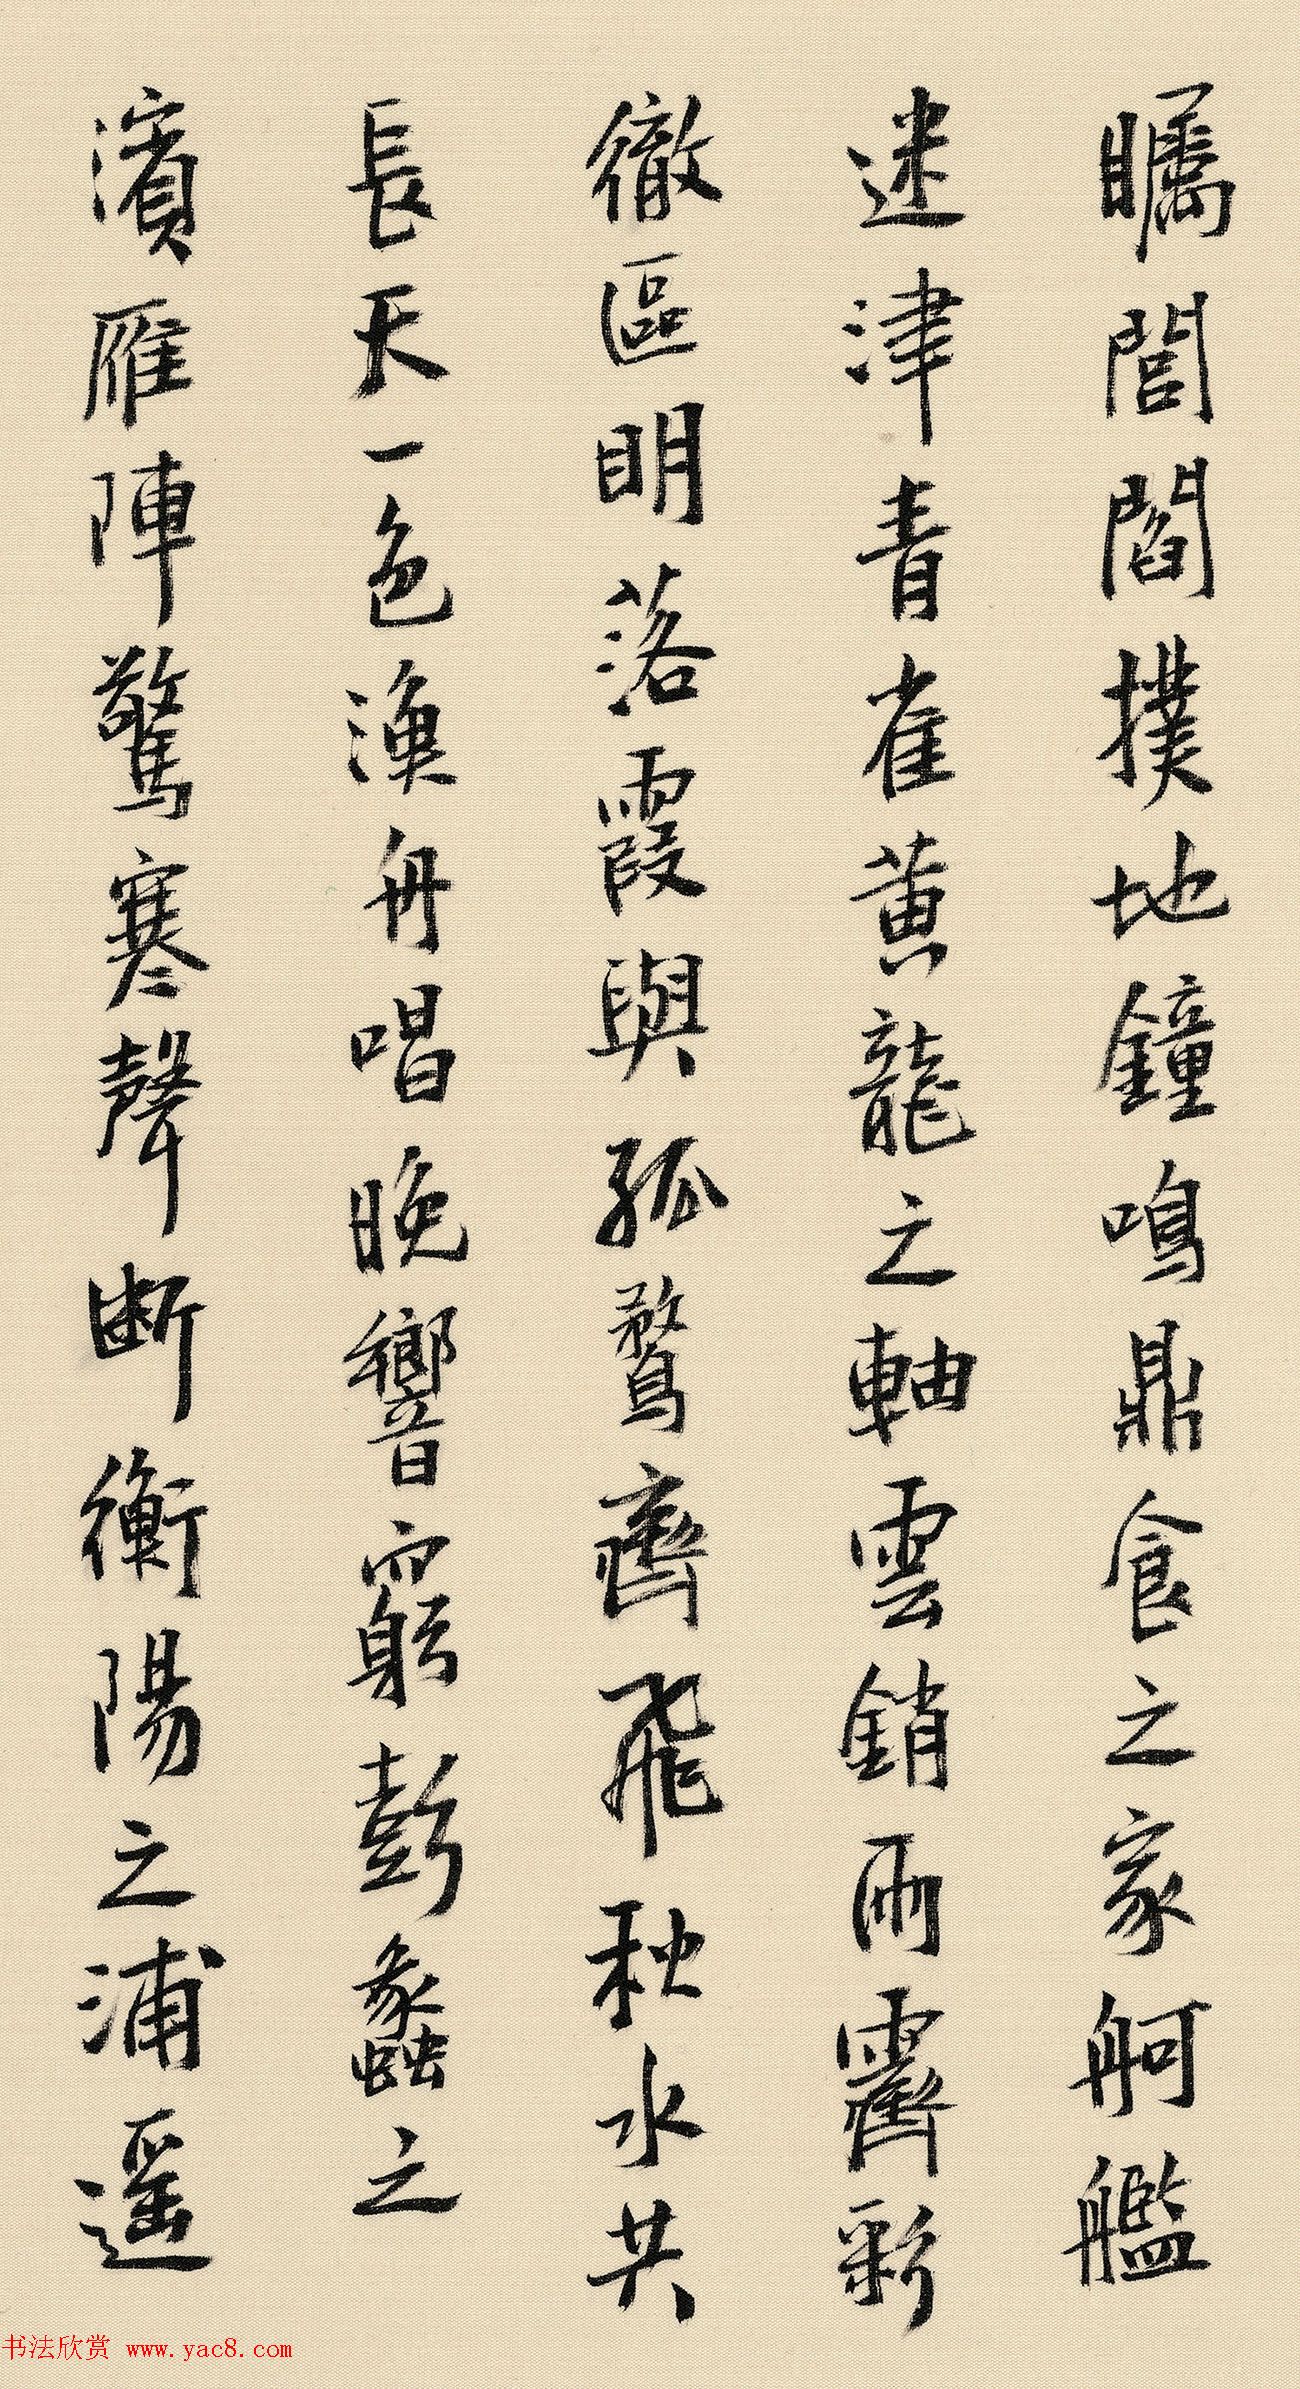 矚閭閻撲地鐘鳴鼎食之家舸艦
迷津青雀黄龍之軸雲銷雨霽彩
徹區明落霞與孤鶩齊飛秋水共
長天一色漁舟唱晚響窮彭蠡之
濱雁陣驚寒聲斷衡陽之浦遥
书法欣赏 www.yac8.com